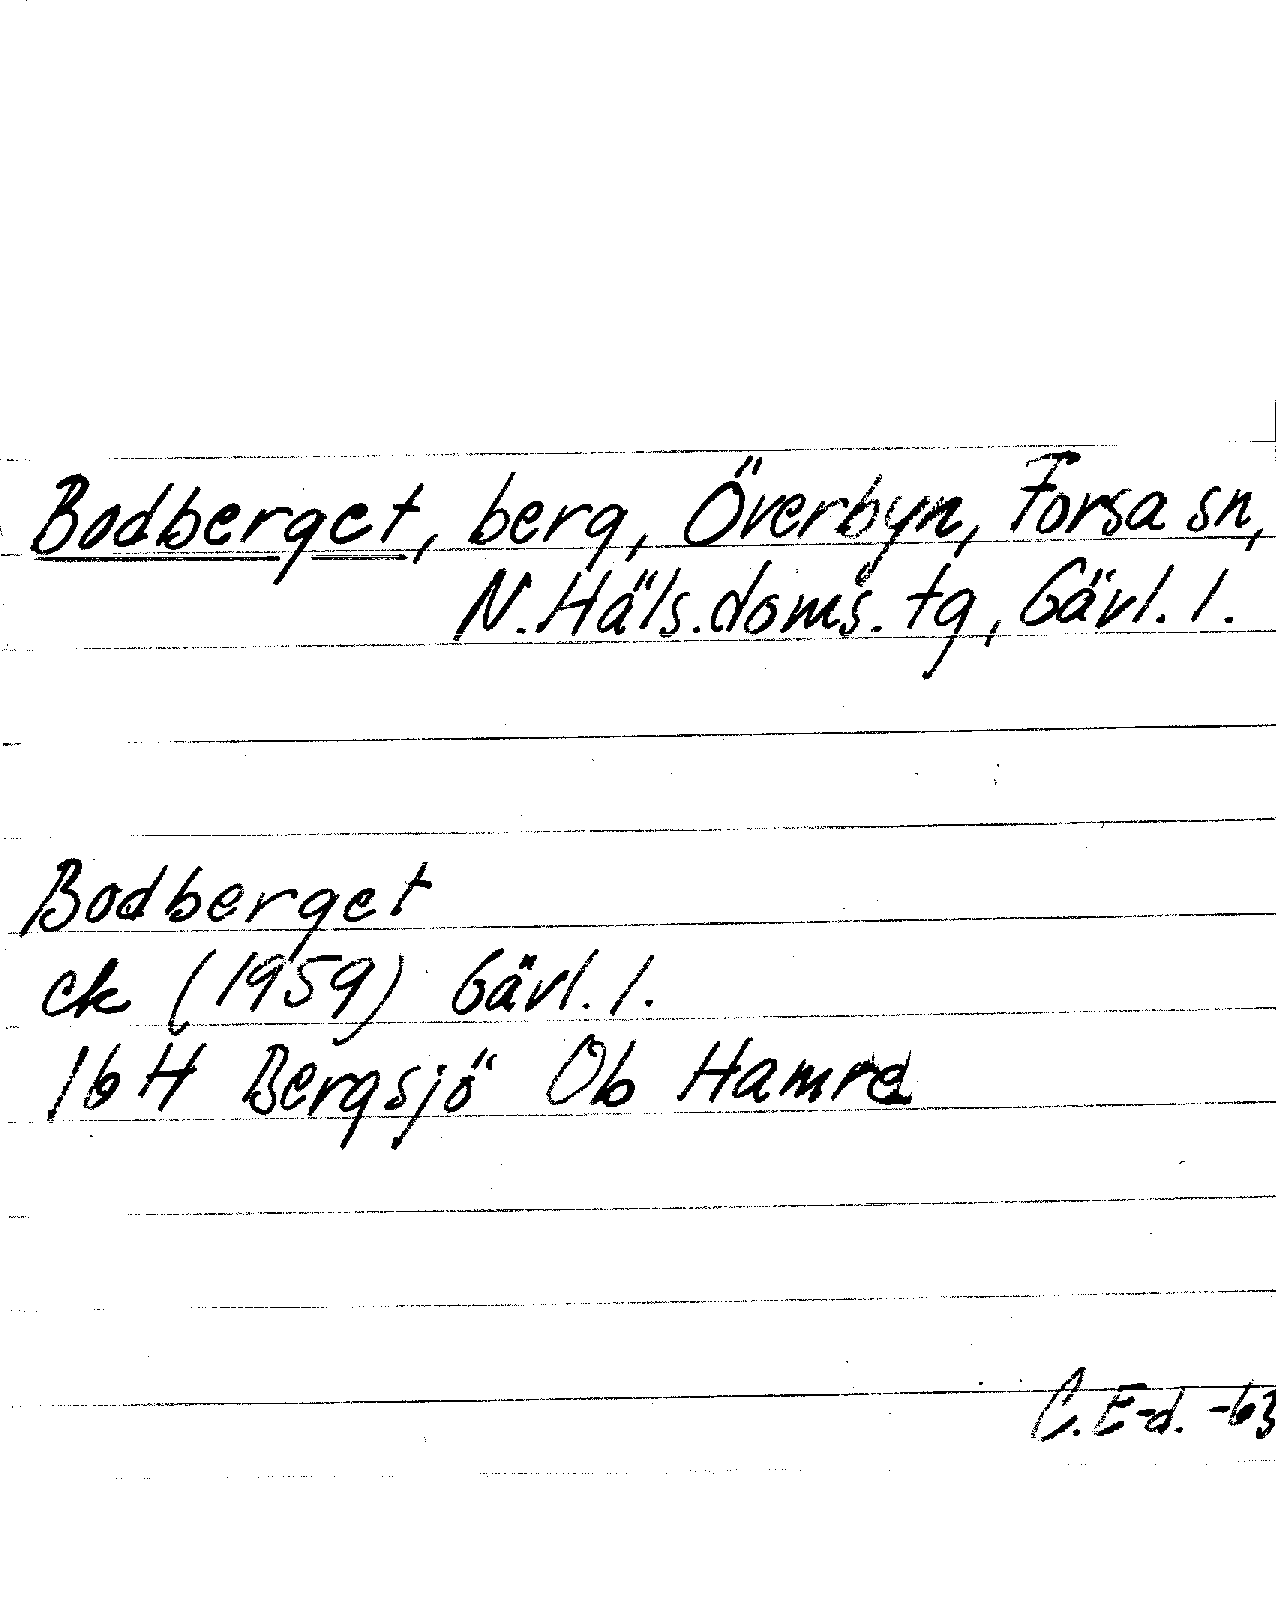 Bodberget, berg, Överbyn, Forsa sn,
N. Häls. doms. tg, Gävl. l.
Bodberget
ek (1959) Gävl. l.
16 H Bergsjö Ob Hamre
C. E-d. -63